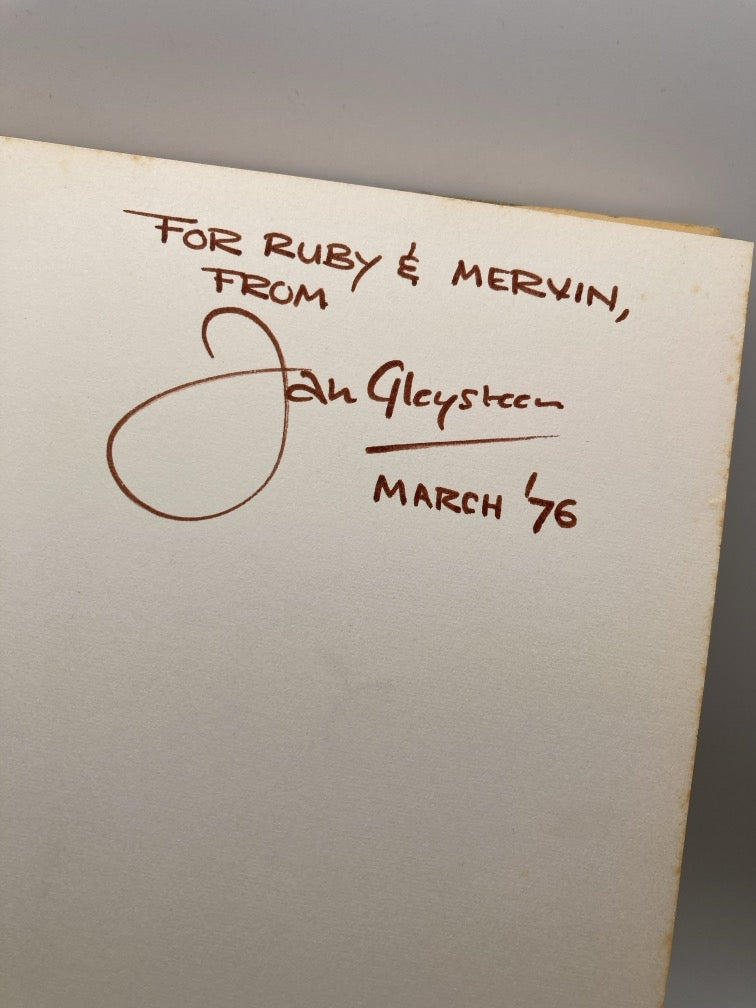 FOR RUBY & MERVIN,
FROM
Jan Gleysteen
MARCH '76